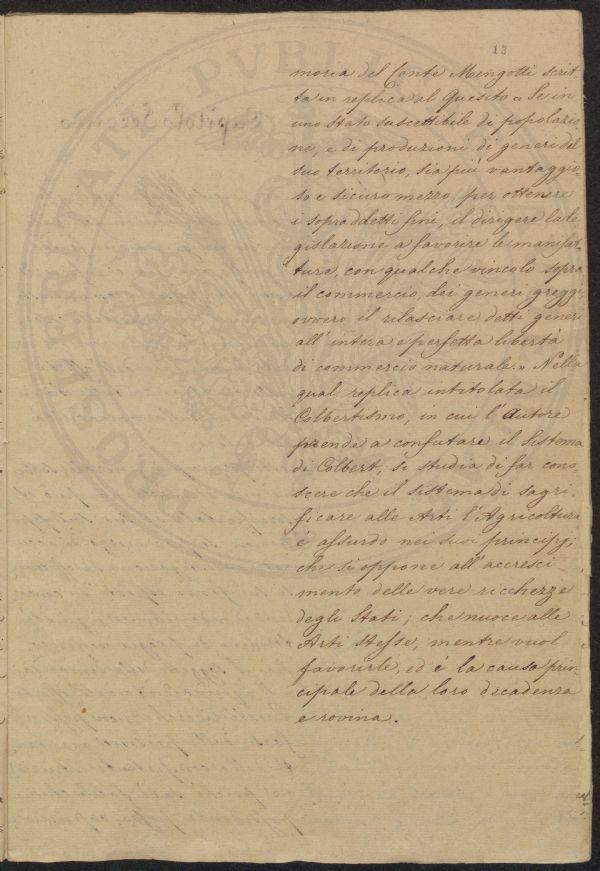 13
moria del Conte Mengotti scrit-
ta in replica al Quesito « Se in
uno Stato suscettibile di popolazio-
ne, e di produzioni di generi del
suo territorio, sia più vantaggio-
so e sicuro mezzo, per ottenere
i sopraddetti fini, il dirigere la le-
gislazione a favorire le manifat-
ture, con qualche vincolo sopra
il commercio, dei generi greggi
ovvero il rilasciare detti generi
all' intera e perfetta libertà
di commercio naturale.» Nella
qual replica intitolata il
Colbertismo, in cui l' Autore
prende a confutare il Sistema
di Colbert, si studia di far cono-
scere che il sistema di sagri-
ficare alle Arti l' Agricoltura
è assurdo nei suoi principj;
che si oppone all' accresci-
mento delle vere ricchezze
degli Stati; che nuoce alle
Arti stesse, mentre vuol
favorirle, ed è la causa prin-
cipale della loro decadenza
e rovina.